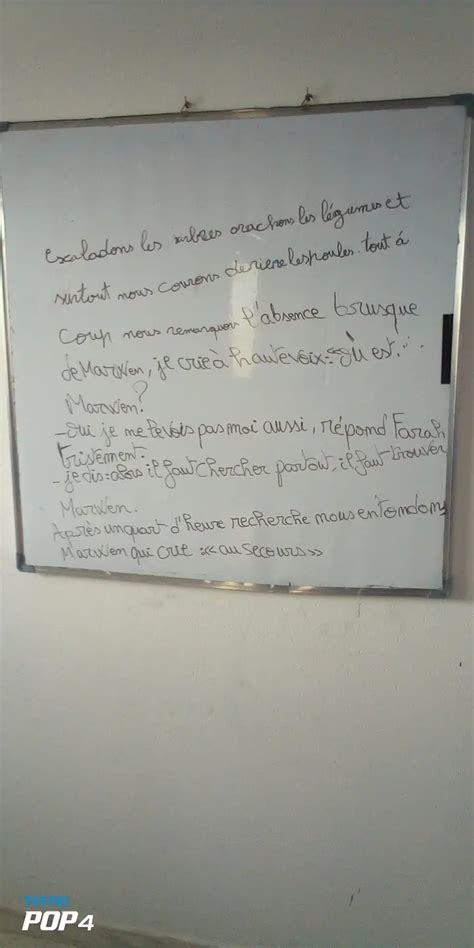 escaladons les arbres arachons les légumes et
surtout nous courons deriere les poules. tout à
coup nous remarquons l'absence brusque
de Marwen, je crie à haute voix: << Où est...
Marwen?
- oui je ne te vois pas moi aussi, répond Farah
tristement.
- je dis: alors il faut chercher partout, il faut trouver
Marwen.
Après un quart d'heure recherche nous entendons
Marwen qui crie << au secours >>
TECNO
POP 4